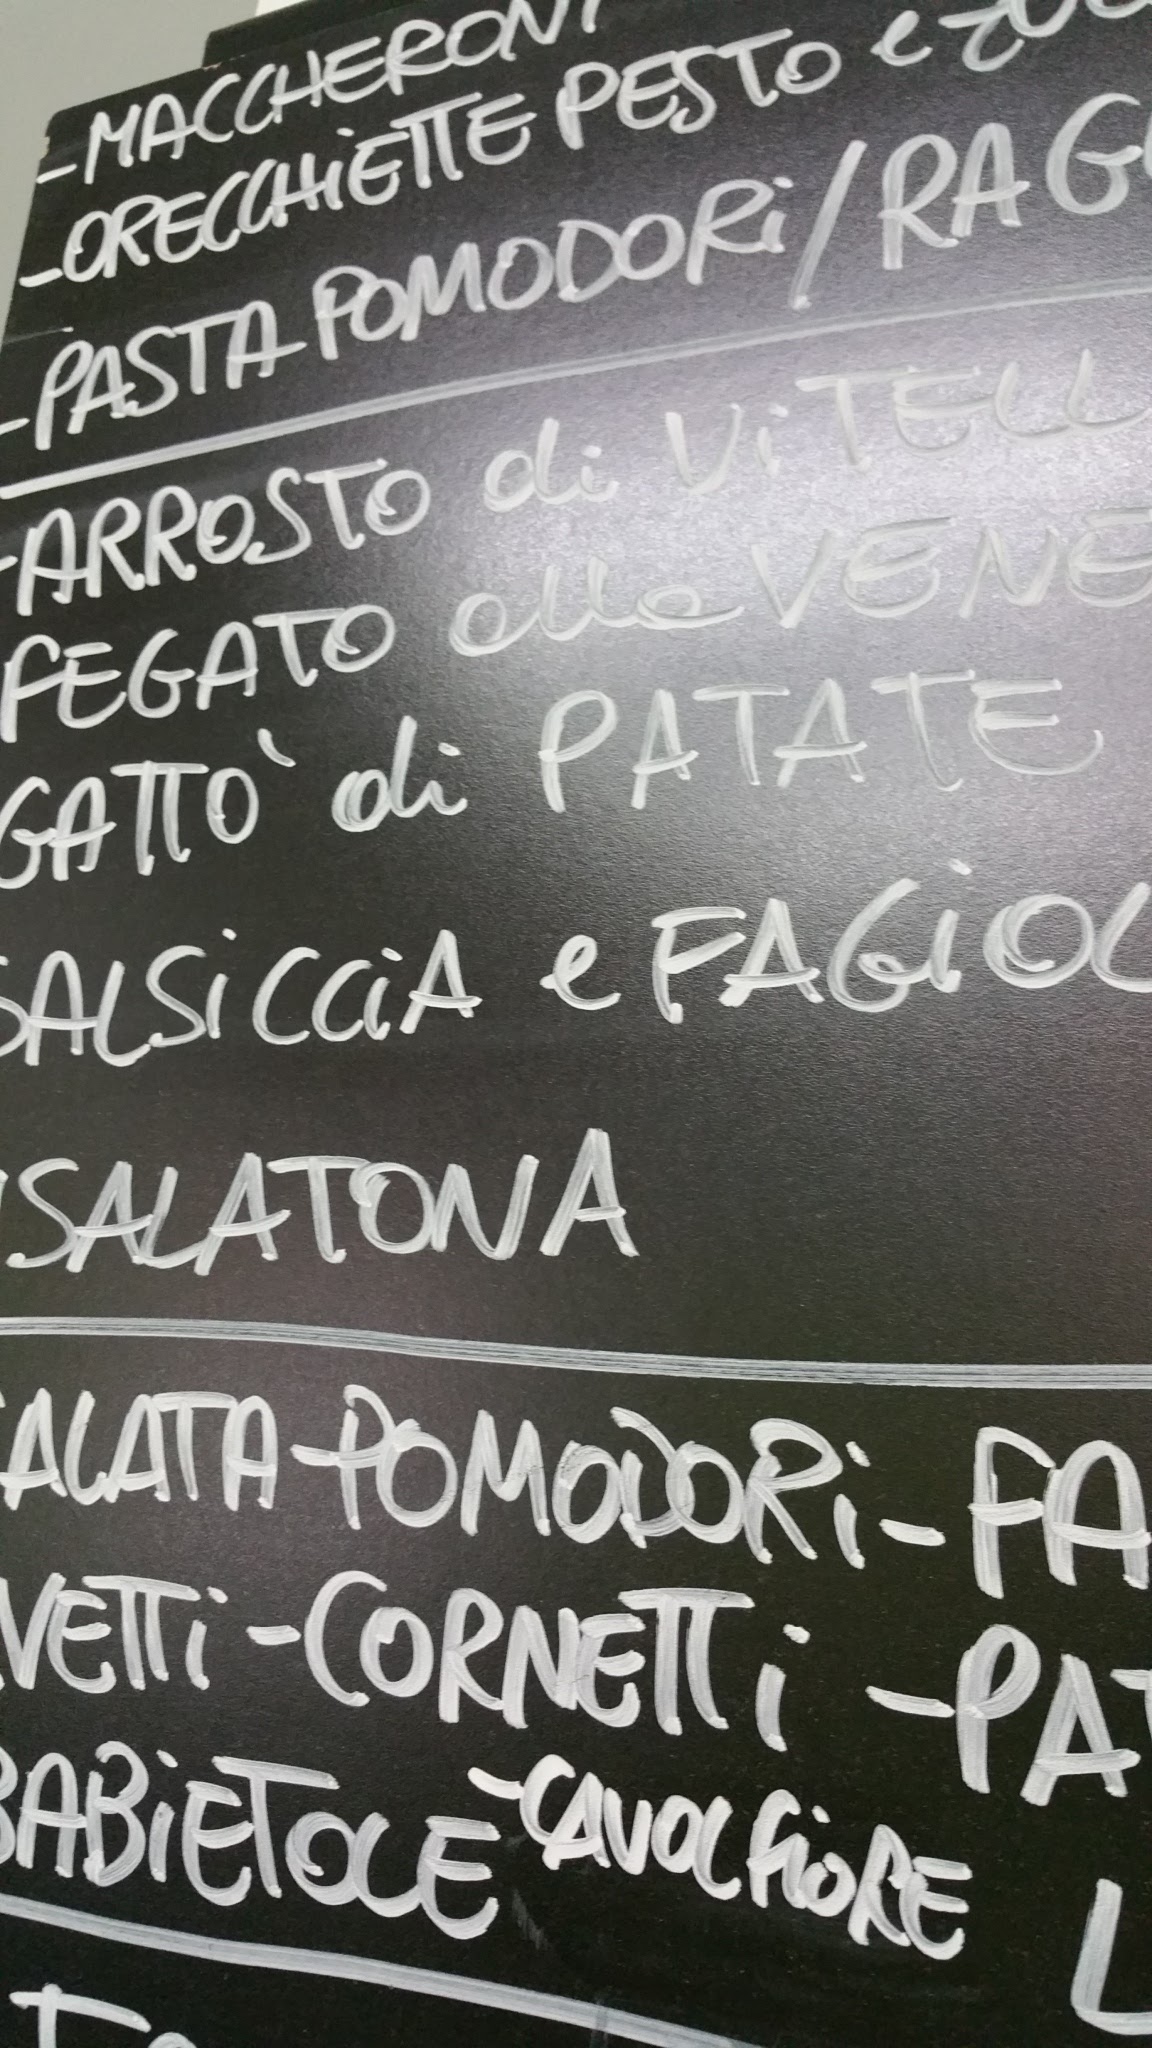 -MACCHERONI
-ORECCHIETTE PESTO e
-PASTA POMODORi/RAG
-ARROSTO di ViTELL
FEGATO alla VENE
GATTO' di PATATE
SALSiCCiA e FAGiOL
SALATONA
ALATA-POMODORi-FA
VETTi-CORNETTi-PAT
BABiETOLE-CAVOLFiORE